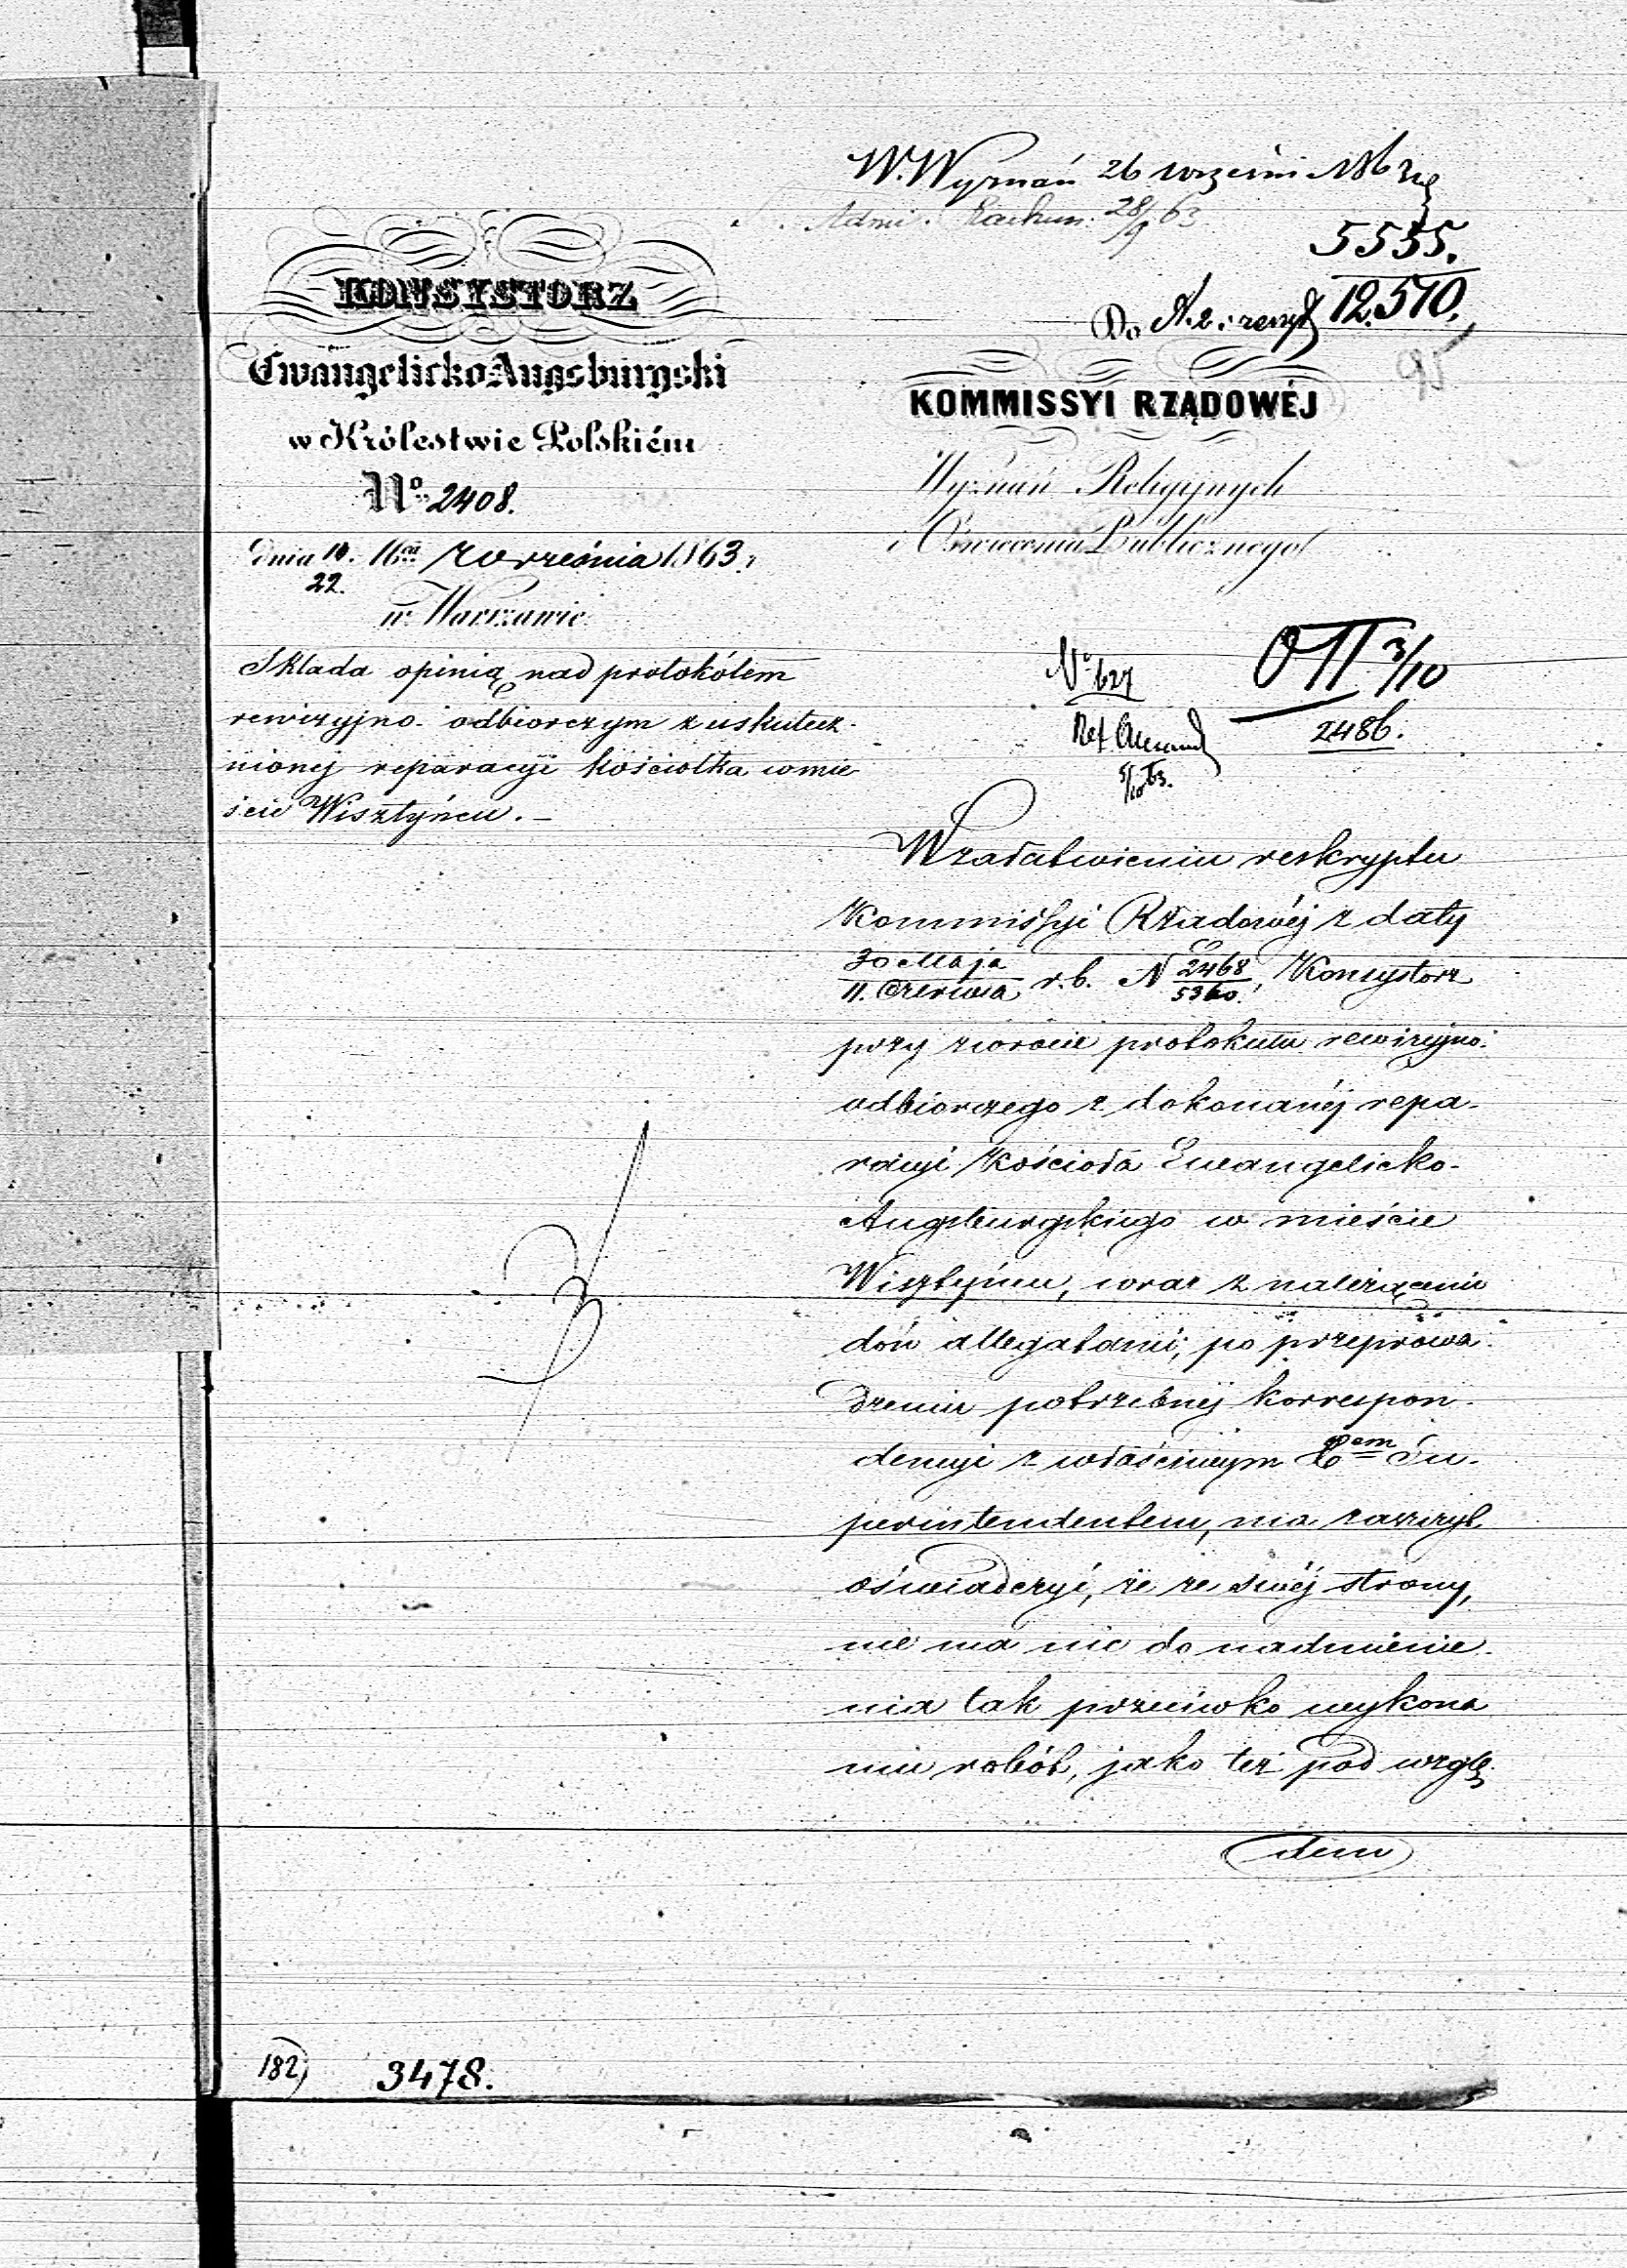 W. Wyznań 26 września 1863 r.
Admi. Rachun. 28/9 63
5535.
12.570.
Do
95
KONSYSTORZ
Ewangelicko-Augsburgski
w Królestwie Polskiém
No 2408.
dnia 10. 16go Września 1863 r.
22.
w Warszawie
KOMMISSYI RZĄDOWÉJ
Wyznań Religijnych
i Oświecenia Publicznego
Składa opinią nad protokółem
rewizyjno-odbiorczym z uskutecz-
nionej reparacyi kościołka w mie-
ście Wisztyńcu. –
No 627
Ref.
5/10 63.
3/10
2486.
W załatwieniu reskryptu
Kommissyi Rządowéj z daty
30 Maja / 11. Czerwca r. b. N 2468 / 5360., Konsystorz
przy zwrocie protokułu rewizyjno-
odbiorczego z dokonanéj repa-
racyi Kościoła Ewangelicko-
Augsburgskiego w mieście
Wisztyńcu, wraz z należącemi
doń allegatami, po przeprowa-
dzeniu potrzebnéj korrespon-
dencyi z właściwym Xem Su-
perintendentem, ma zaszczyt
oświadczyć, że ze swéj strony,
nie ma nic do nadmienie-
nia tak przeciwko wykona
niu robót, jako też pod wzglę-
dem
182)
3478.